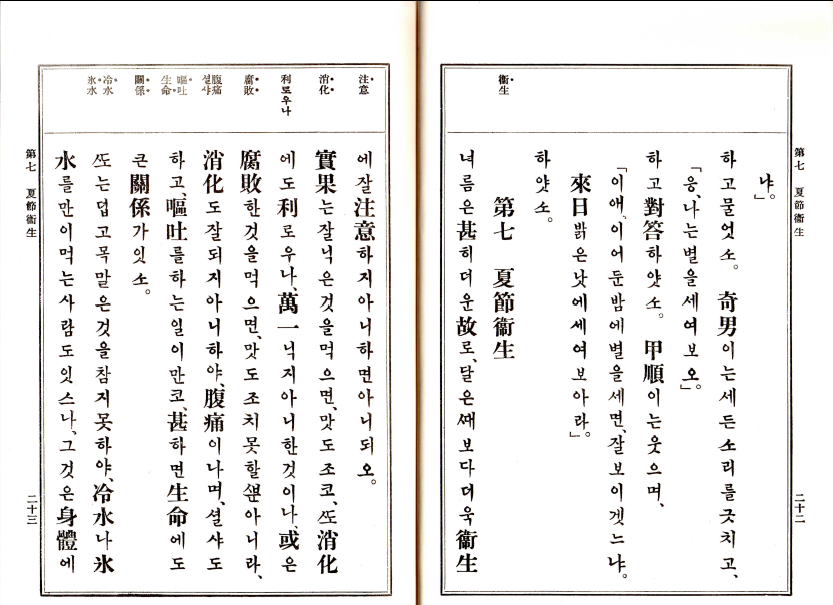 第七 夏節衞生
二十二
衞生
냐。」
하고물엇소。 奇男이는세든소리를긋치고、
「응、나는별을세여보오」。
하고對答하얏소。 甲順이는웃으며、
「이애、이어둔밤에별을세면、잘보이겟느냐。
來日밝은낫에세여보아라」。
하얏소。
第七 夏節衞生
녀름은甚히더운故로、달은ᄯᅢ보다더욱衞生
注意
消化
利로우나
腐敗
腹痛
셜샤
嘔吐
生命
關係
冷水
氷水
에잘注意하지아니하면아니되오。
實果는잘닉은것을먹으면、맛도조코、ᄯᅩ消化
에도利로우나、萬一닉지아니한것이나、或은
腐敗한것을먹으면、맛도조치못할ᄲᅮᆫ아니라、
消化도잘되지아니하야、腹痛이나며、셜샤도
하고、嘔吐를하는일이만코、甚하면生命에도
큰關係가잇소。
ᄯᅩ는덥고목말은것을참지못하야、冷水나氷
水를만이먹는사람도잇스나、그것은身體에
第七 夏節衞生
二十三